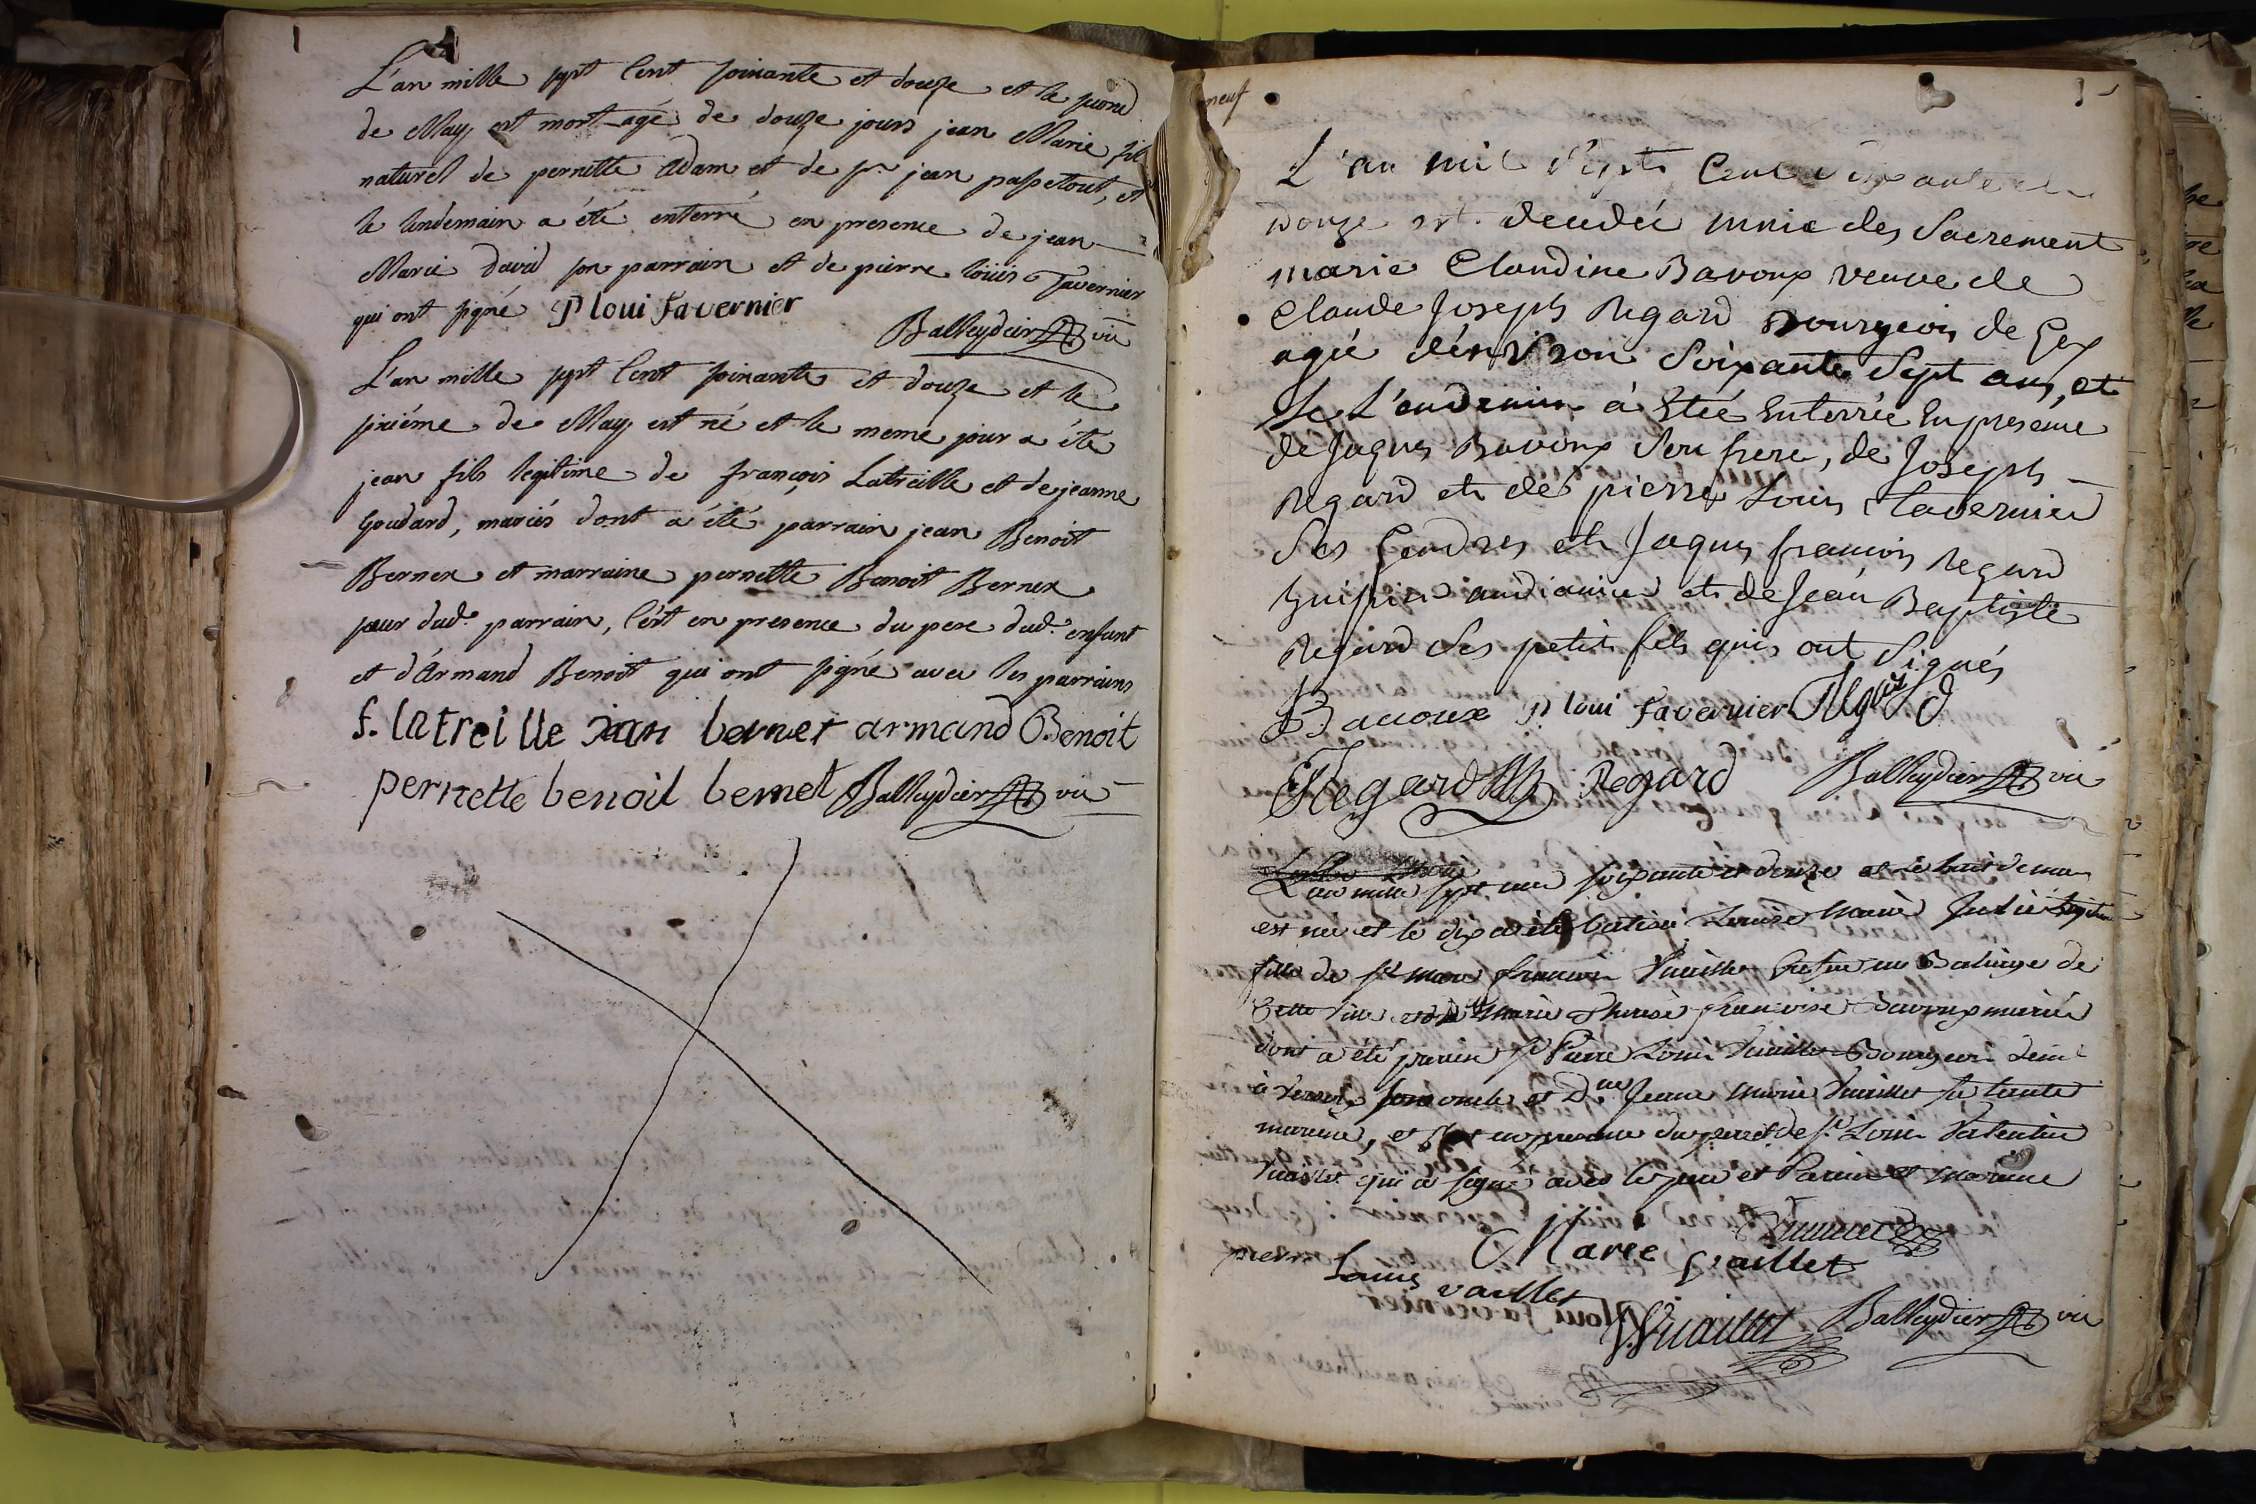 L'an mille sept Cent soixante et douze et le second
de May est mort agé de douze jours jean Marie fils
naturel de pernette Adam et de sr. jean passetout, et
le lendemain a été enterré en presence de jean
Marie david son parrain et de pierre loüis Tavernier
qui ont signé P loui Tavernier
Balleydier vic
L'an mille sept Cent soixante et douze et le
sixiéme de May est né et le meme jour a été
jean fils legitime de françois Latreille et de jeanne
Goudard, mariés dont a été parrain jean Benoit
Bernex et marraine pernette Benoit Bernex
sœur dud. parrain, C'est en presence du pere dud. enfant
et d'Armand Benoit qui ont signé avec les parrains
f. latreille jean bernet armand Benoit
pernette benoit bernet Balleydier vic
neuf
L'an mil Sept Cent soixante et
Douze est decedée munie des Sacrement
marie Claudine Bavoux veuve de
Claude Joseph Regard Bourgeois de Gex
agée d'environ Soixante Sept ans, et
Le L'endemain à Eteé Enterrée En presence
de Jaques Bavoux Son frere, de Joseph
Regard et de pierre Louis Tavernier
Ses Gendres et Jaques francois Regard
huissier audiancier et de Jean Baptiste
Regard Ses petit fils qui ont Signés
Bavoux P loui Tavernier Regard
Regard Regard Balleydier vic
L'an mille sept cent soixante et douze et le huit de mai
est née et le dix a été batisée Louise Marie Julie legitime
fille de sr marc francois Vuaillet Grefier au Balliage de
Cette Ville et de Marie Therese francoise Bavoux mariés
dont a été parein sr Pierre Louis Vuaillet Bourgeois dem.
à son oncle et D.lle Jeanne Marie Vuaillet sa tante
mareine, et C'est en presence du pere et de sr. Louis Valentin
Vuaillet qui a signé avec le pere et Parein et Mareine
Vuaillet
Marie Vuaillet
pierre Louis vaillet
Vuaillet Balleydier vic